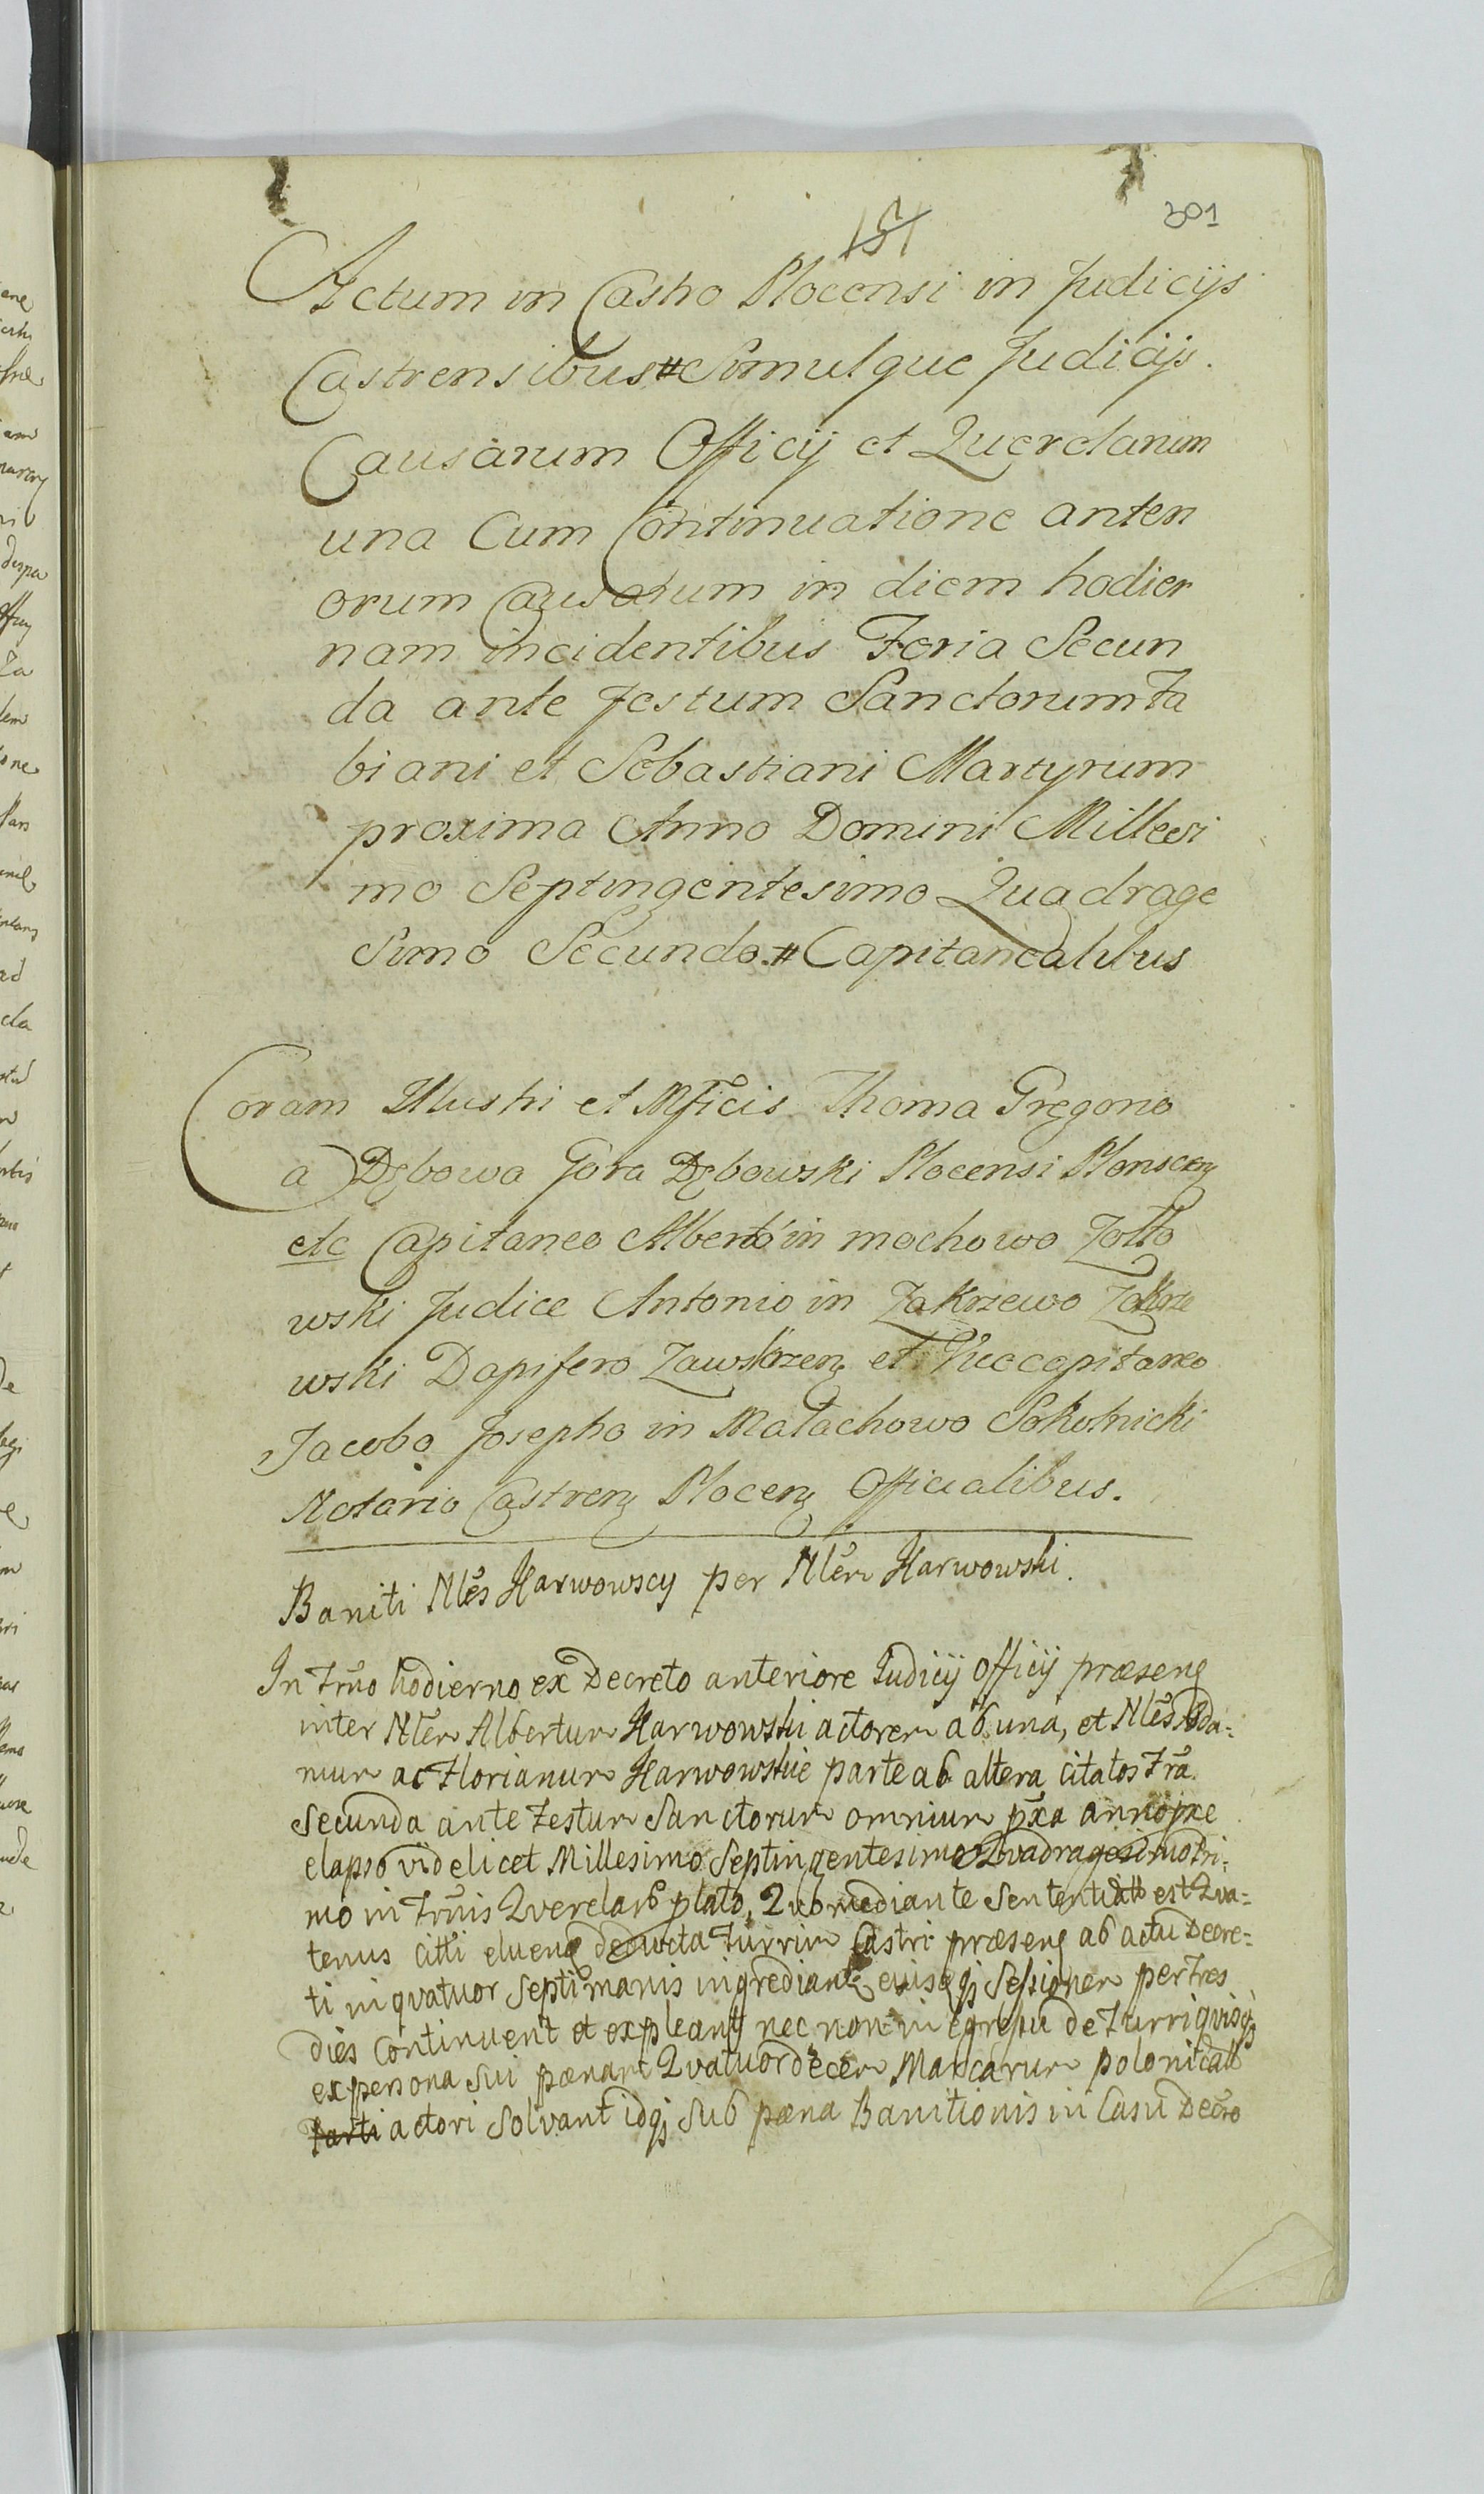 151
301
Actum in Castro Plocensi in Judicijs
Castrensibus # Simulque Judicijs
Causarum Officij et Querelarum
una Cum Continuatione anteri
orum Causarum in diem hodier
nam incidentibus Feria Secun
da ante Festum Sanctorum Fa
biani et Sebastiani Martyrum
proxima Anno Domini Millesi
mo Septingentesimo Quadrage
simo Secundo. # Capitanealibus
Coram Illustri et Mficis Thoma Gregorio
a Dębowa Góra Dębowski Plocensi Plonscen
etc Capitaneo Alberto in mochowo Zołto
wski Judice Antonio in Zakrzewo Zakrze
wski Dapifero Zawskrzen et Vicecapitaneo
Jacobo Josepho in Małachowo Sokolnicki
Notario Castren Plocen Officialibus.
Baniti Nles Harwowscy per Nlem Harwowski.
In Trno hodierno ex Decreto anteriore Judicij Officij præsens
inter Nlem Albertum Harwowski actorem ab una, et Nles Ada=
mum ac Florianum Harwowskie parte ab altera citatos Fra
Secunda ante Festum Sanctorum omnium pxa anno pxe
elapso videlicet Millesimo Septingentesimo Quadragesimo Pri=
mo in Trnis Querelar plato, Quo mediante Sententiatt est Qva=
tenus citti eluens deducta Turrim Castri præsens ab actu Decre=
ti in qvatuor Septimanis ingrediant eiusqj Sessionem per Tres
dies Continuent et expleant nec non in Egressu de Turri qvisqj
ex persona sui pœnam Qvatuordecem Marcarum polonicatt
Parti actori Solvant idqj Sub pœna Banitionis in Casu Decro